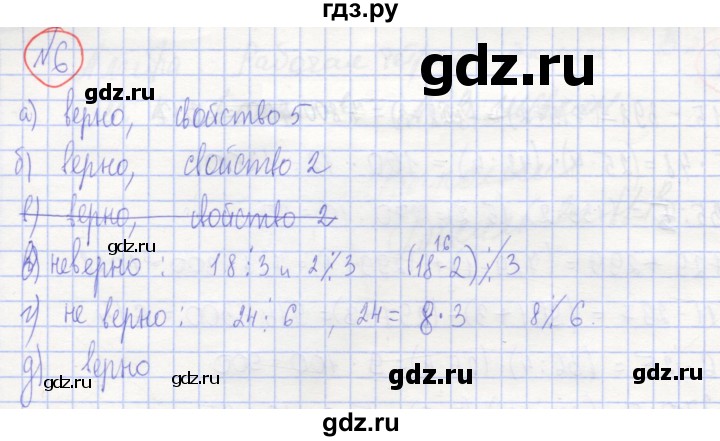 гдз.ру
№6
gdz.ru
а) верно, свойство 5
б) верно, свойство 2
gdz.ru
в) верно, свойство 2
в) неверно: 18⋮3 и 2⋮̸3 (18-2)⋮̸3
16
г) не верно: 24⋮6, 24=8·3 8⋮̸6.
gdz.ru
gdz.ru
д) верно
gdz.ru
gdz.ru
gdz.ru